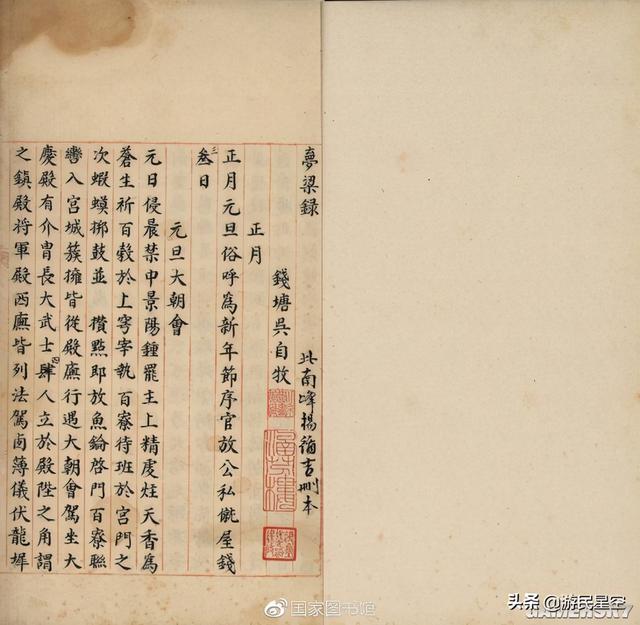 夢粱录
此南峰楊循吉刪本
錢塘吳自牧
正月
正月元旦俗呼為新年節序官放公私僦屋錢
叄日
三
元旦大朝會
元日侵晨禁中景陽鍾罷主上精虔炷天香為
蒼生祈百穀於上穹宰執百寮待班於宮門之
次蝦蟆梆鼓並 攢點即放魚鑰啓門百寮聯
轡入宮城簇擁皆從殿廡行遇大朝會駕坐大
慶殿有介胄長大武士肆人立於殿陛之角謂
四
之鎮殿将軍殿西廡皆列法駕鹵薄儀伏龍墀
国家图书馆
头条 @游民星空
GAMERSKY